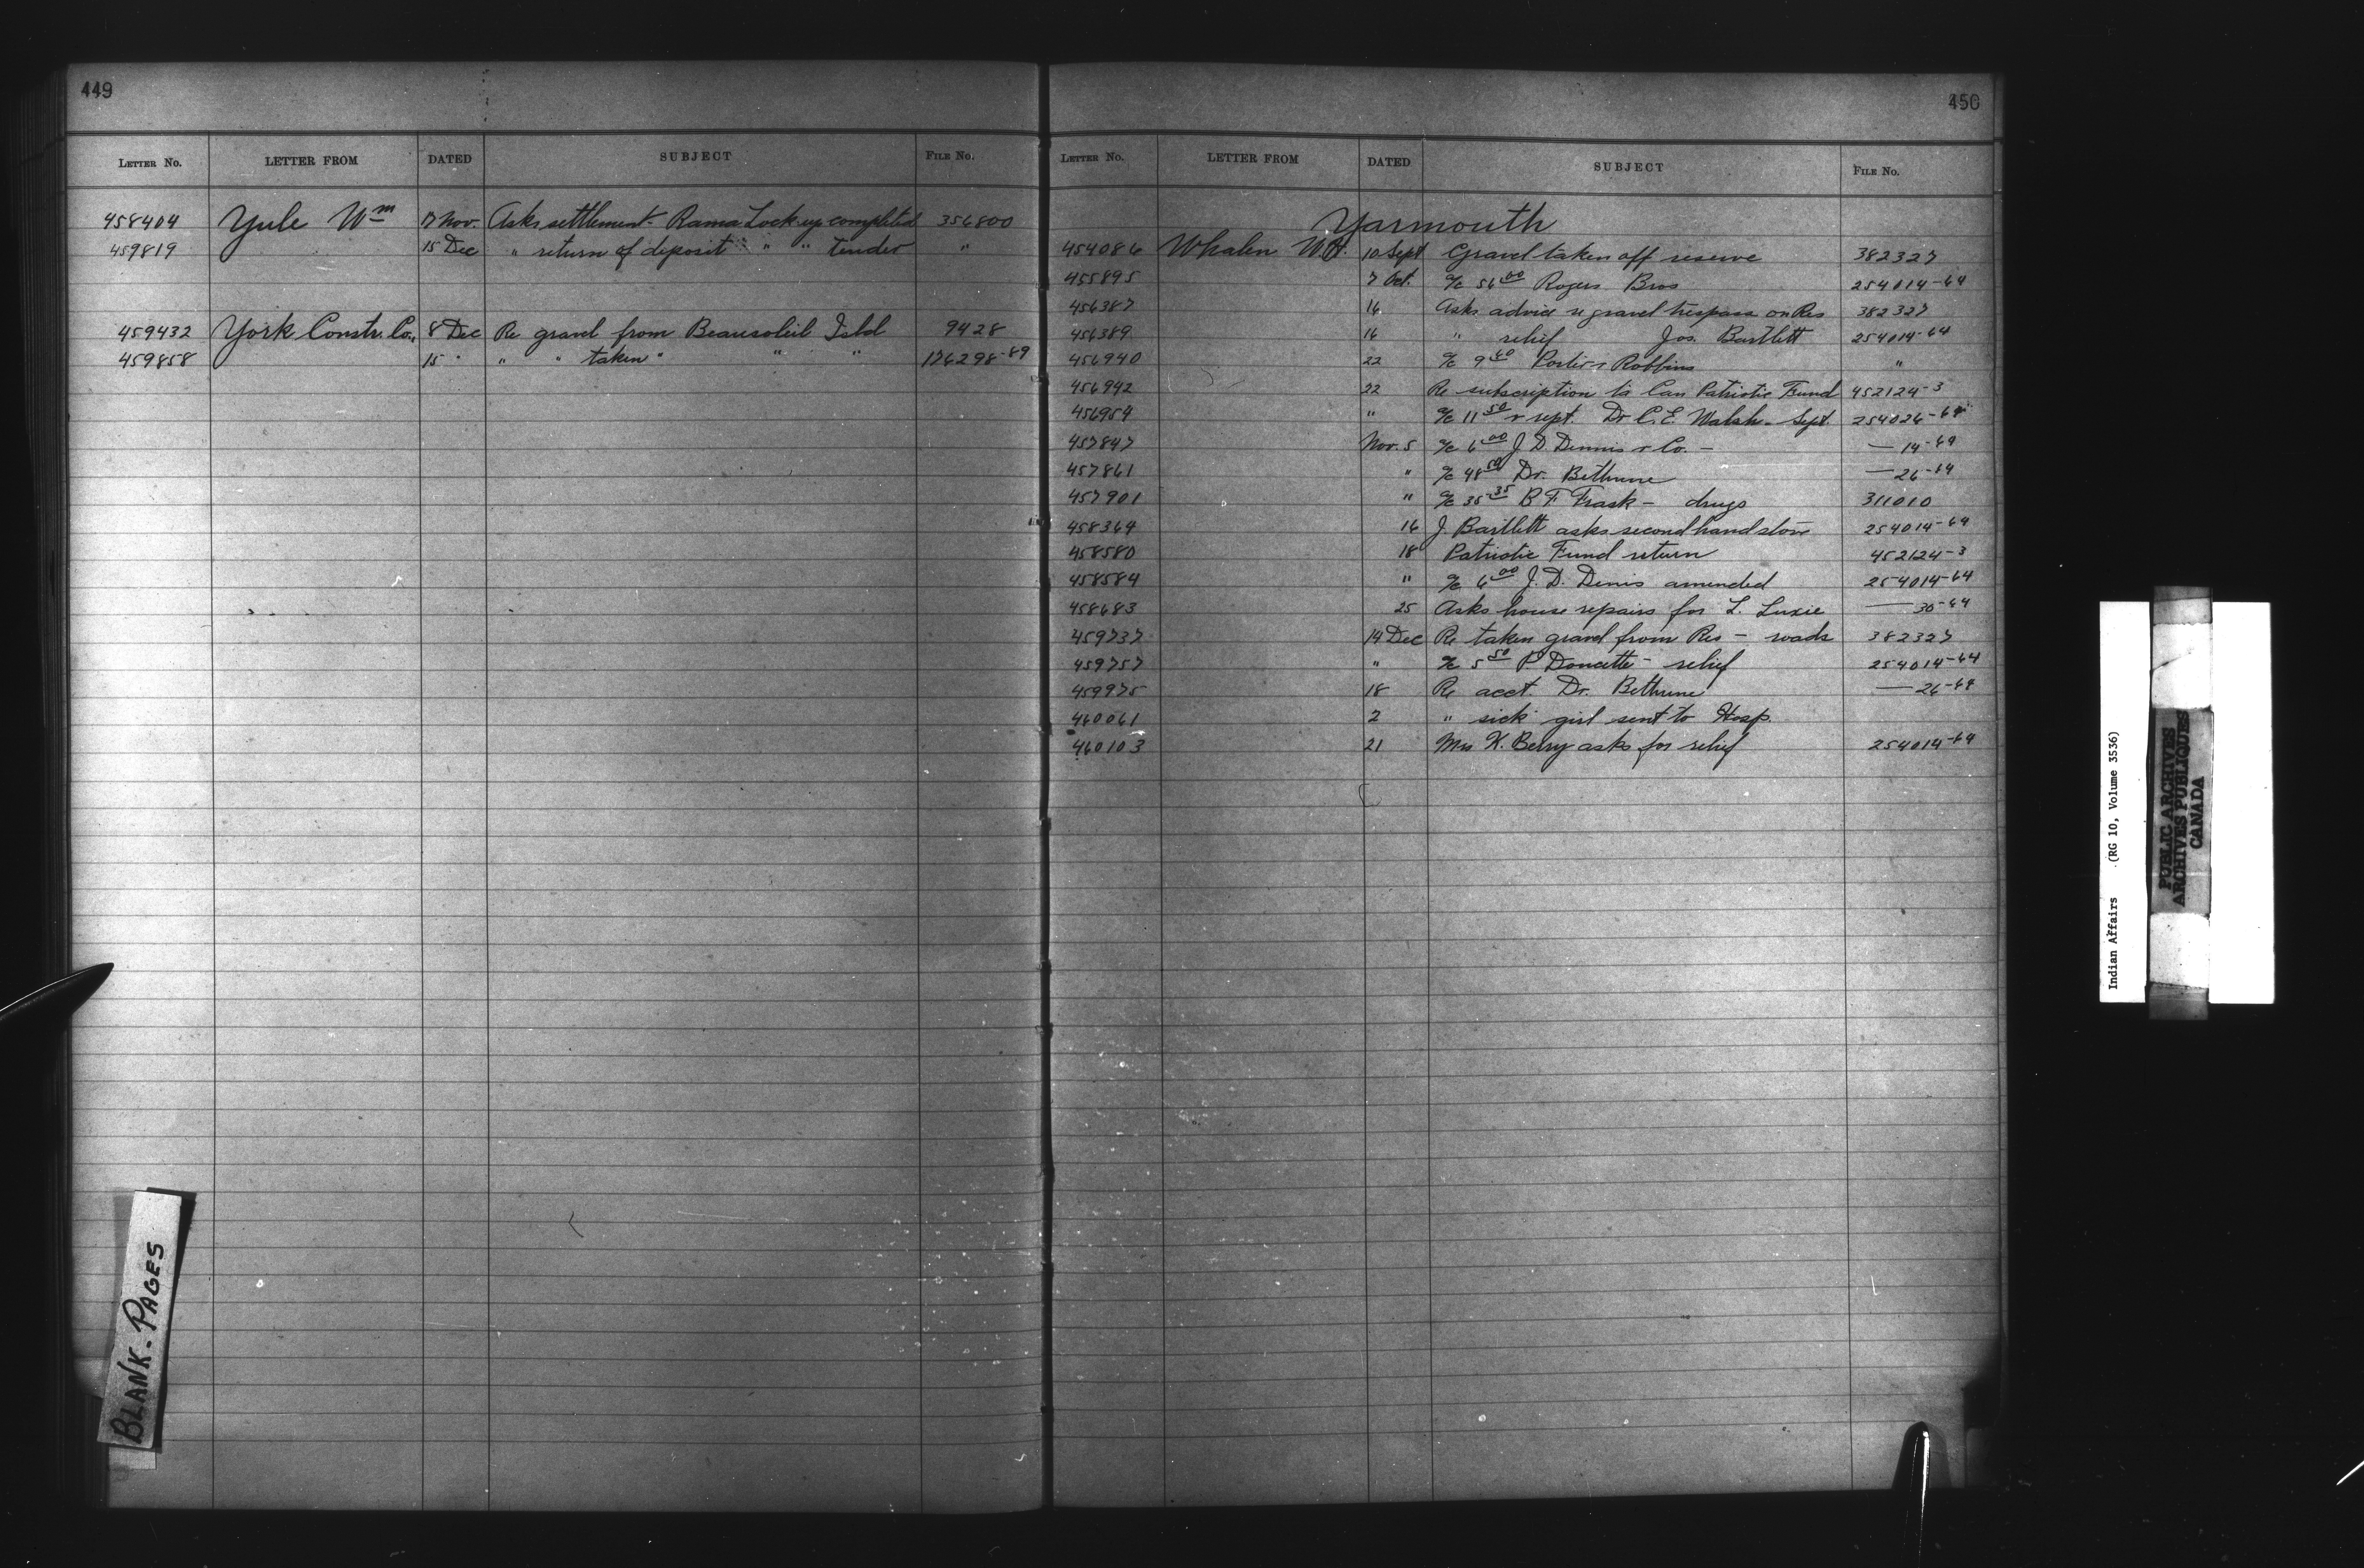 449
LETTER No. LETTER FROM DATED SUBJECT FILE No.
458404 Yule Wm 17 Nov. Asks settlement - Rama Lock-up completed 356800
459819 15 Dec " return of deposit " " tender "
459432 York Constr. Co., 8 Dec Re gravel from Beausoleil Isld 9428
459858 15 " " " taken " " " 176298-89
BLANK-PAGES
450
LETTER No. LETTER FROM DATED SUBJECT FILE No.
Yarmouth
454086 Whalen W.H. 10 Sept Gravel taken off reserve 382327
455895 7 Oct. a/c 56 00 Rogers Bros 254014-64
456387 16 Asks advice re gravel trespass on Res 382327
456389 16 " relief Jos. Bartlett 254014-64
456940 22 a/c 9 40 Porter & Robbins "
456942 22 Re subscription to Can Patriotic Fund 452124-3
456954 " a/c 11 50 & rept. Dr C.E. Walsh - Sept. 254026-64
457847 Nov. 5 a/c 6 00 J.D. Dennis & Co. - — 14-64
457861 " a/c 48 50 Dr. Bethune — 26-64
457901 " a/c 35 35 B.F. Trask - drugs 311010
458364 16 J Bartlett asks second hand stove 254014-64
458580 18 Patriotic Fund return 452124-3
458584 " a/c 6 00 J.D. Dinis amended 254014-64
458683 25 Asks house repairs for L. Luxie — 30-64
459737 14 Dec Re taken gravel from Res - roads 382327
459757 " a/c 5 50 P. Doucette - relief 254014-64
459975 18 Re acct. Dr. Bethune — 26-64
460061 2 " sick girl sent to Hosp.
460103 21 Mrs K. Berry asks for relief 254014-64
Indian Affairs (RG 10, Volume 3536)
PUBLIC ARCHIVES
ARCHIVES PUBLIQUES
CANADA